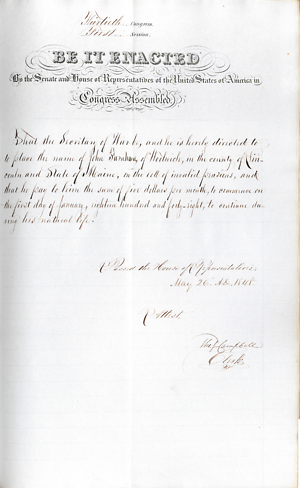 Thirtieth Congress,
First Session,
BE IT ENACTED
By the Senate and House of Representatives of the United States of America in
Congress Assembled,
That the Secretary of War be, and he is hereby directed to
to place the name of John Farnham, of Wiscasset, in the county of Lin-
coln and State of Maine, on the roll of invalid pensions, and
that he pay to him the sum of five dollars per month, to commence on
the first day of January, eighteen hundred and forty-eight, to continue du-
ring his natural life.
Passed the House of Representatives,
May 26. A.D. 1848.
Attest.
Tho. J. Campbell
Clerk